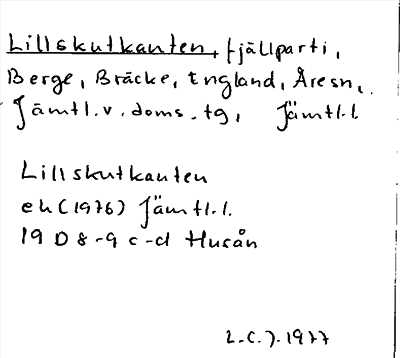 Lillskutkanten, fjällparti,
Berge, Bräcke, England, Åresn,
Jämtl.v.doms.tg, Jämtl.l.
Lillskutkanten
ek (1976) Jämtl.l.
19 D 8-9 c-d Husån
L.C.J. 1977